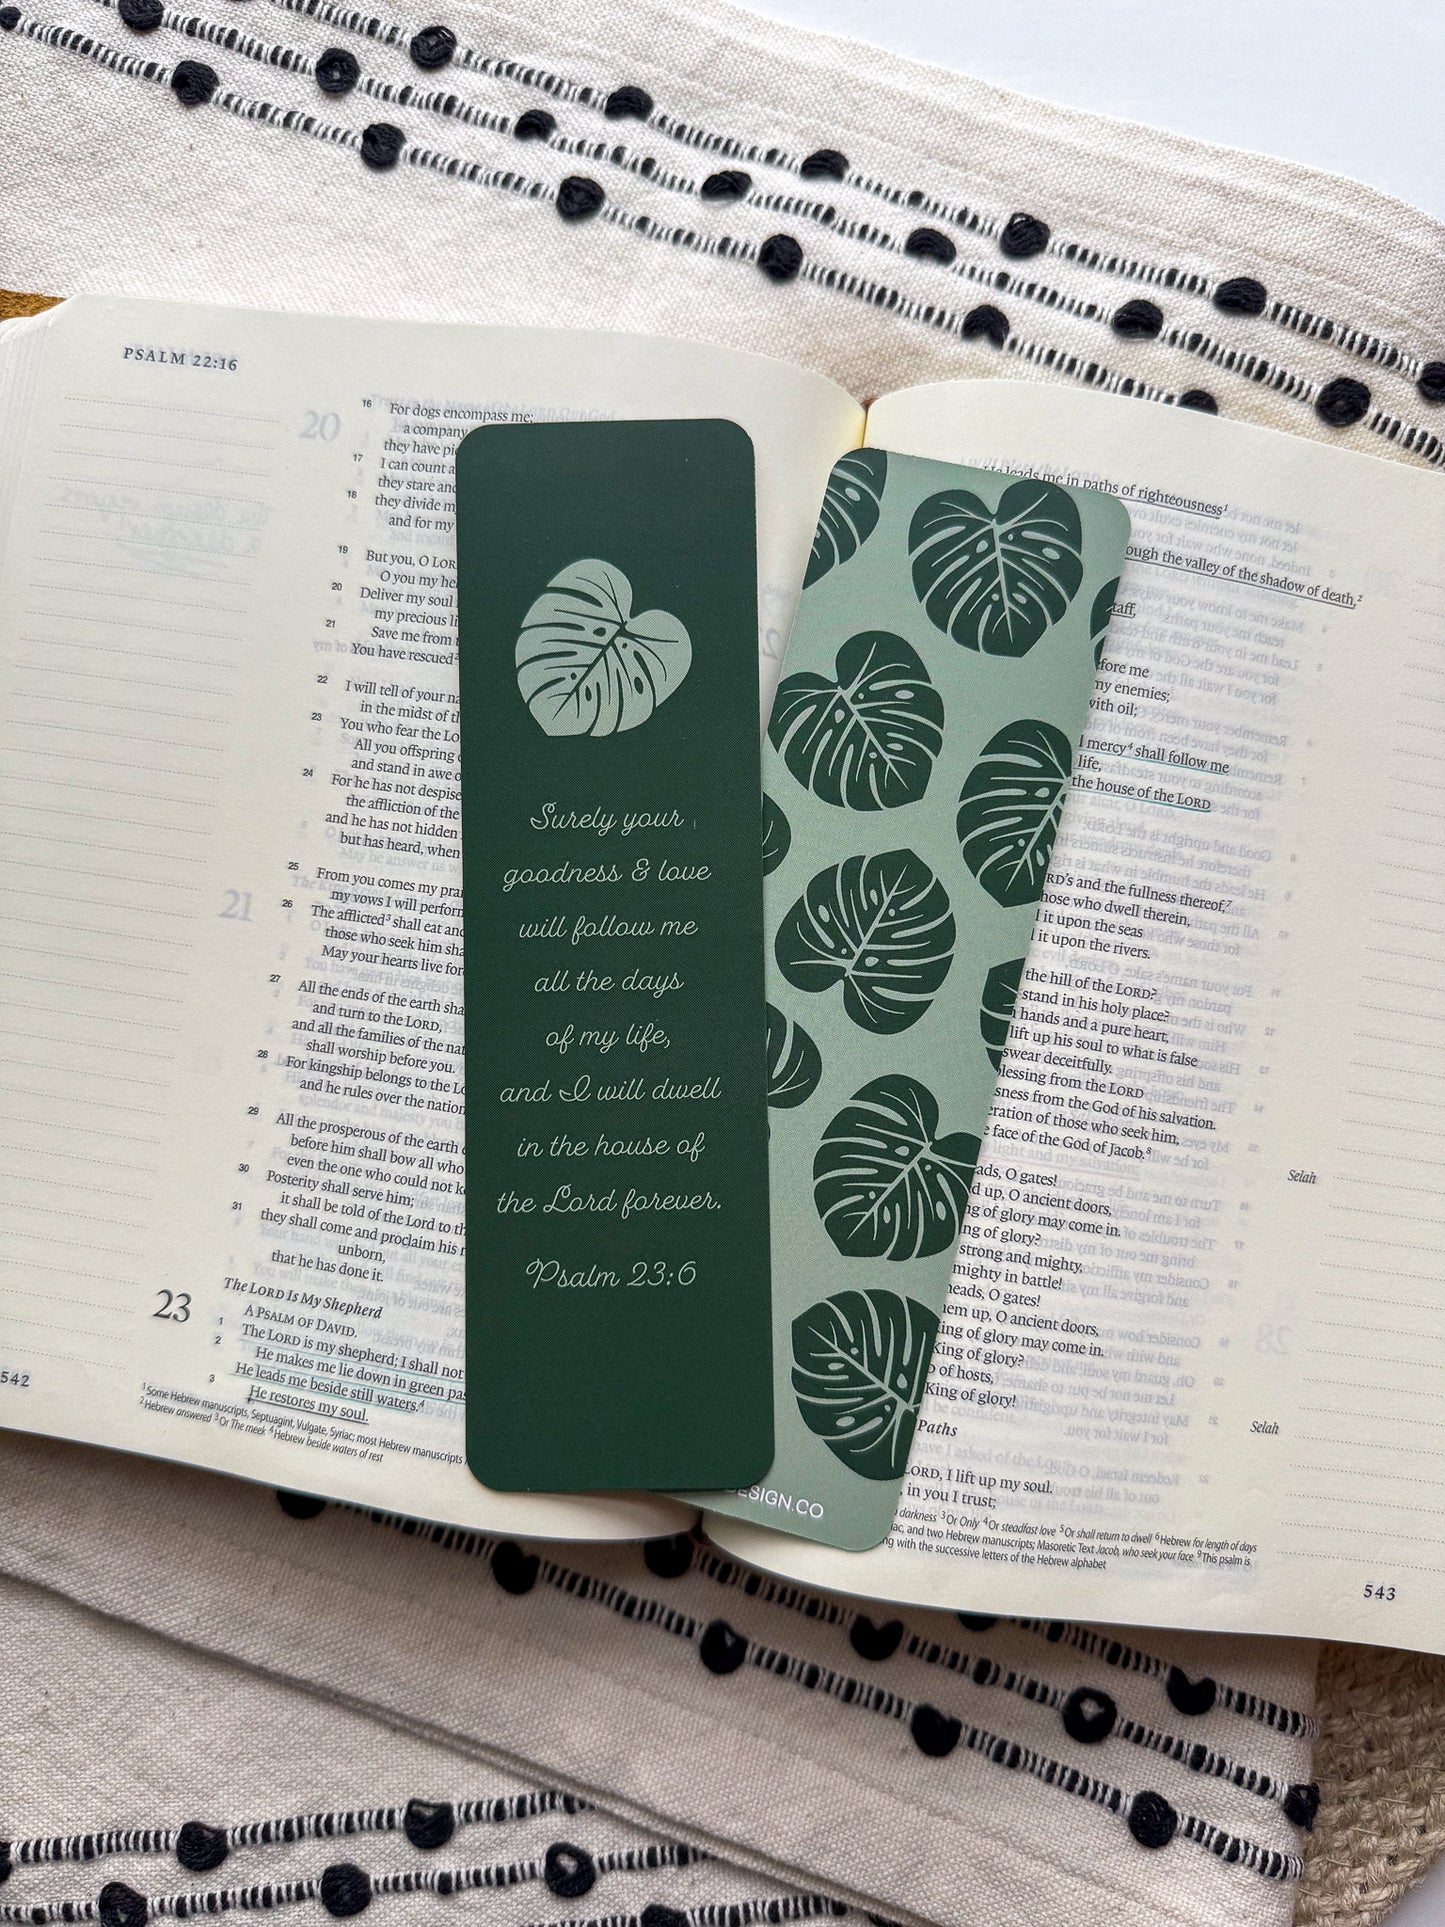 PSALM 22:16
20
16 For dogs encompass me;
a company
they have
17 I can count a
they stare and
18 they divide m
and for my
19 But you, O LOR
O you my hel
20 Deliver my soul
my precious li
21 Save me from t
You have rescued²
22 I will tell of your na
in the midst of th
23 You who fear the Lo
All you offspring
and stand in awe o
24 For he has not despise
the affliction of the
and he has not hidden
but has heard, when
21
25 From you comes my prai
my vows I will perform
26 The afflicted³ shall eat and
those who seek him sha
May your hearts live for
27 All the ends of the earth sha
and turn to the LORD,
and all the families of the nat
shall worship before you.
28 For kingship belongs to the Lo
and he rules over the nation
29 All the prosperous of the earth
before him shall bow all who
even the one who could not k
30 Posterity shall serve him;
it shall be told of the Lord to th
31 they shall come and proclaim his r
unborn,
that he has done it.
23
The LORD Is My Shepherd
A PSALM OF DAVID.
1 The LORD is my shepherd; I shall not
2 He makes me lie down in green pas
He leads me beside still waters.⁴
3 He restores my soul.
¹Some Hebrew manuscripts, Septuagint, Vulgate, Syriac; most Hebrew manuscripts
²Hebrew answered ³Or The meek ⁴Hebrew beside waters of rest
542
Surely your
goodness & love
will follow me
all the days
of my life,
and I will dwell
in the house of
the Lord forever.
Psalm 23:6
ESIGN.CO
He leads me in paths of righteousness¹
ough the valley of the shadow of death,²
taff,
efore me
my enemies;
with oil;
l mercy⁴ shall follow me
life,
the house of the LORD
RD's and the fullness thereof,⁷
hose who dwell therein,
it upon the seas
it upon the rivers.
the hill of the LORD?
stand in his holy place?
hands and a pure heart,
lift up his soul to what is false
swear deceitfully.
blessing from the LORD
sness from the God of his salvation.
eration of those who seek him,
e face of the God of Jacob.⁸
Selah
ads, O gates!
d up, O ancient doors,
ng of glory may come in.
ng of glory?
strong and mighty,
mighty in battle!
heads, O gates!
hem up, O ancient doors,
King of glory may come in.
King of glory?
of hosts,
King of glory!
Selah
Paths
LORD, I lift up my soul.
, in you I trust;
darkness ³Or Only ⁴Or steadfast love ⁵Or shall return to dwell ⁶Hebrew for length of days
ac, and two Hebrew manuscripts; Masoretic Text Jacob, who seek your face ⁹This psalm is
ng with the successive letters of the Hebrew alphabet
543